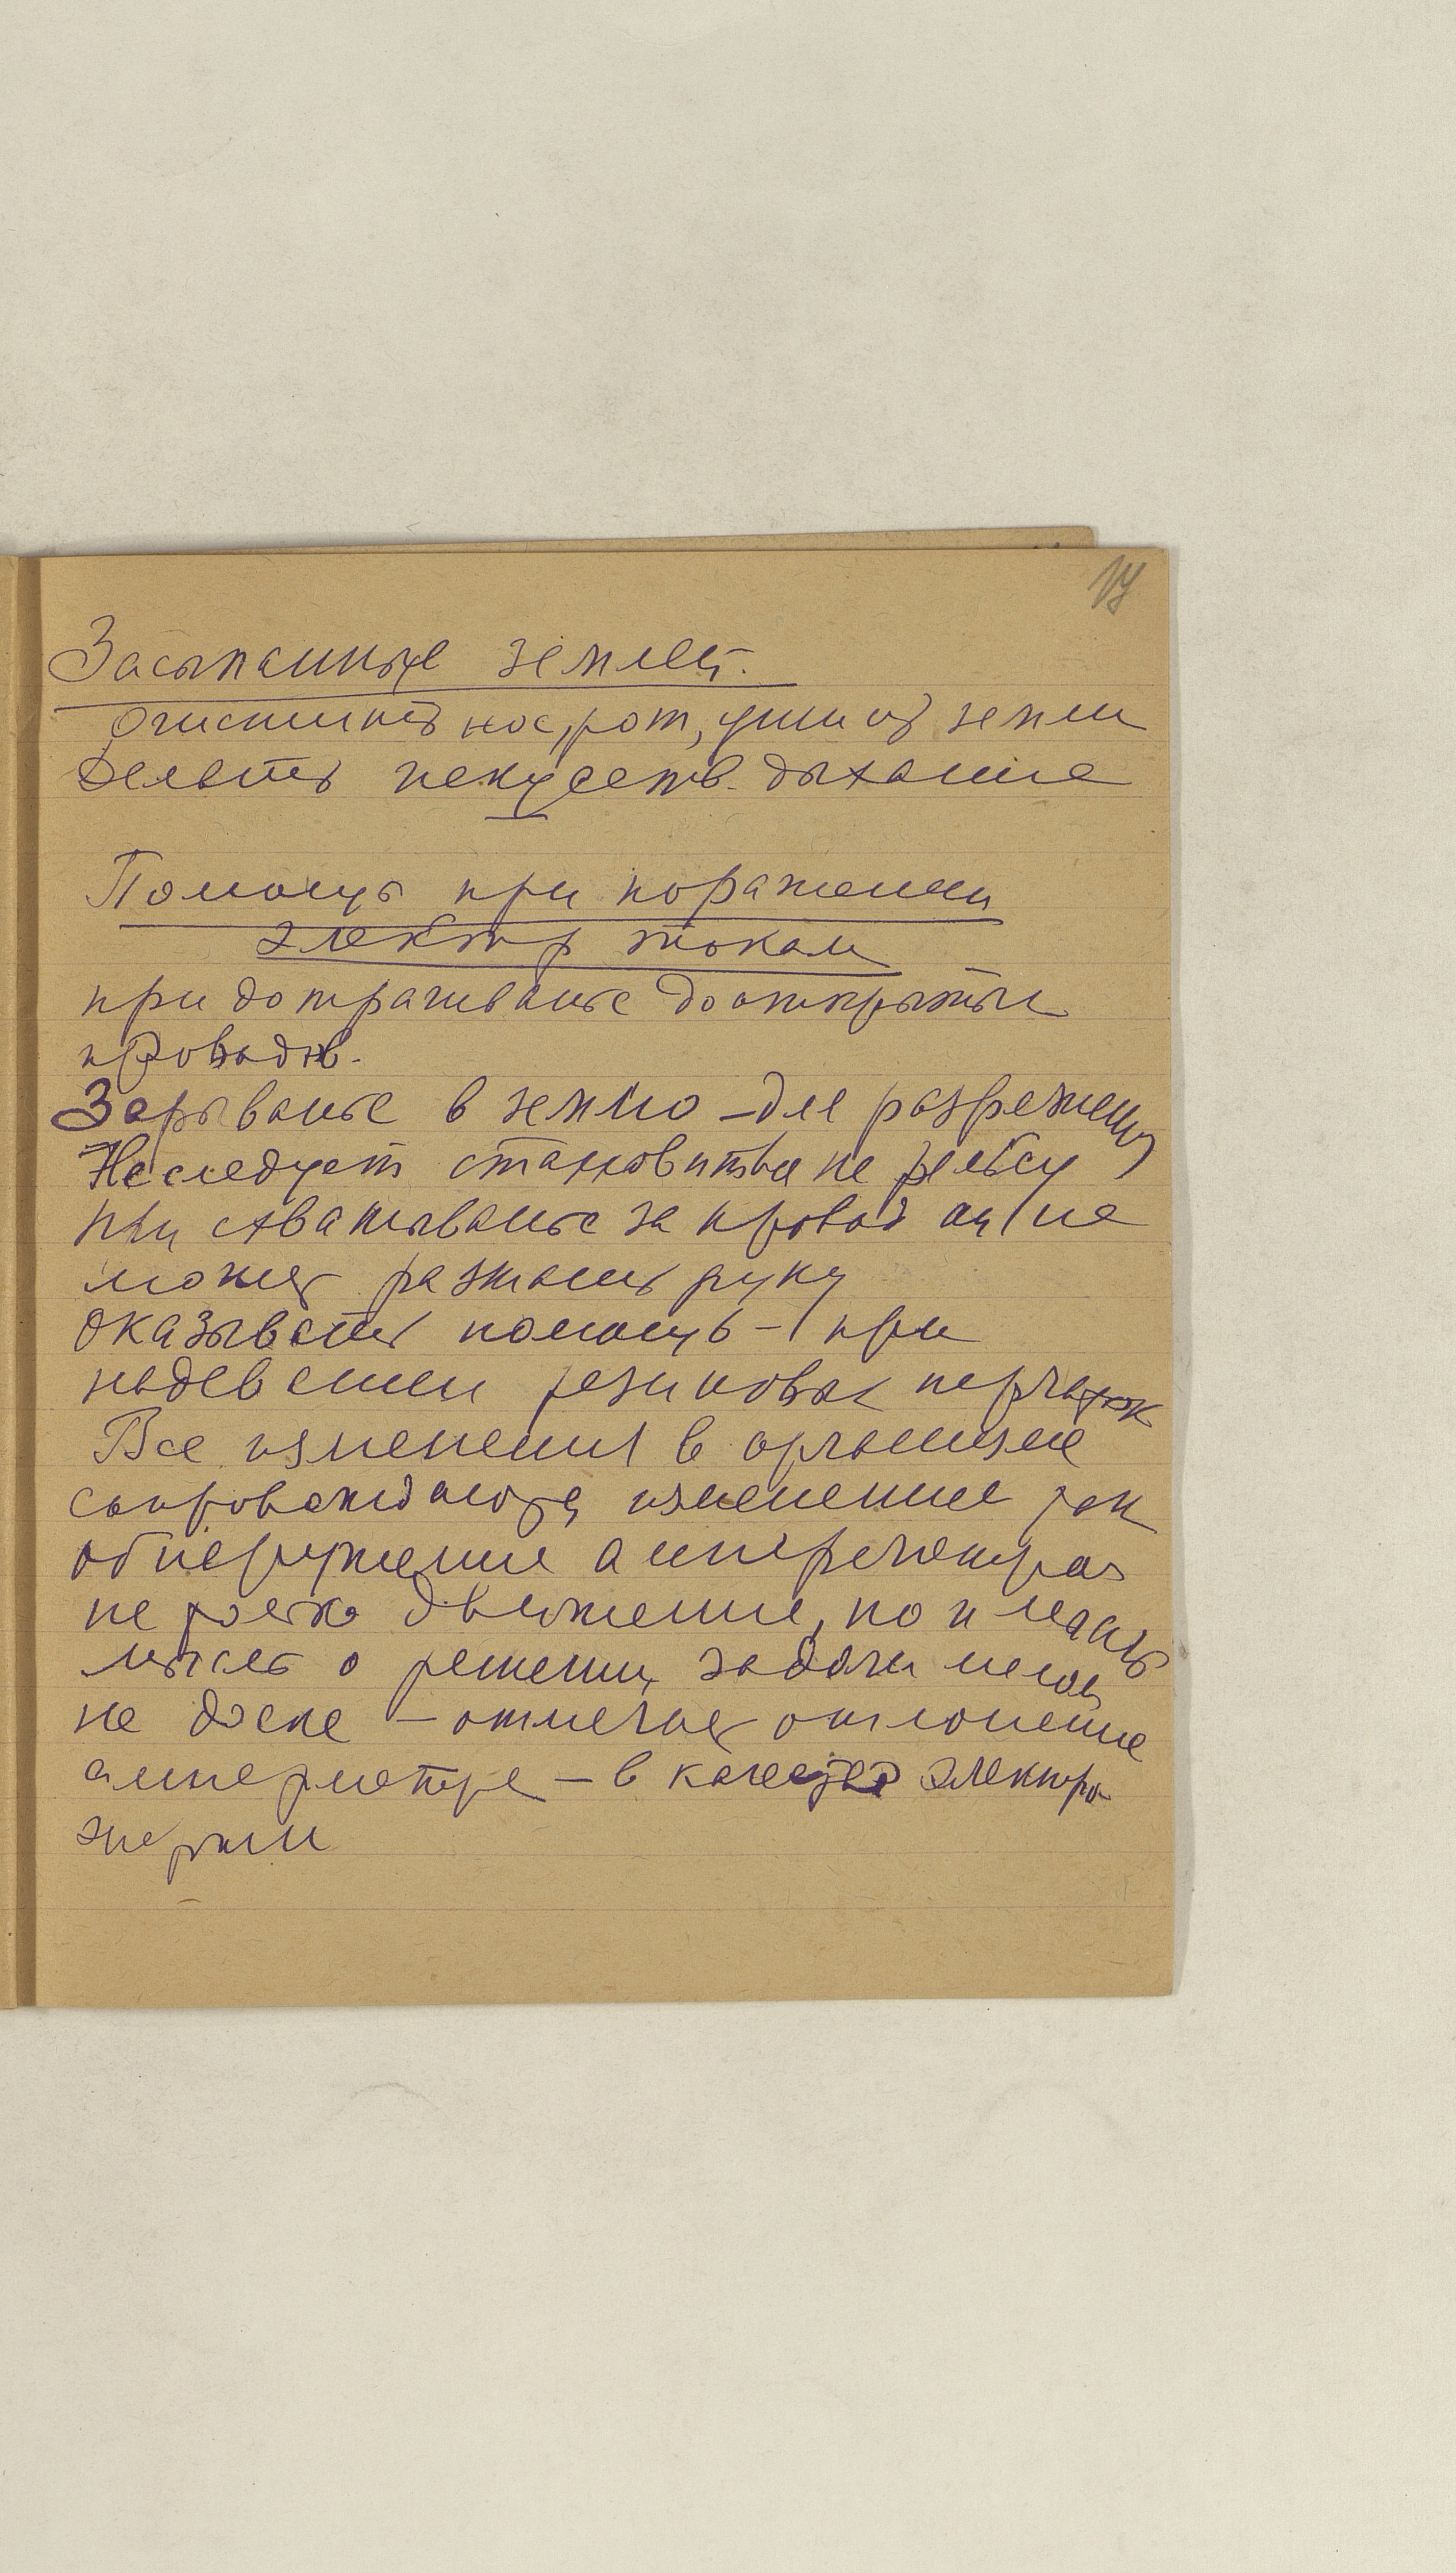 17
Засыпанные землей.
очистить нос, рот, уши от земли
делать искусств. дыхание
Помощь при поражении
электр током
при дотрагиванье до открытых
проводов.
Зарыванье в землю – для разрежения
Не следует становиться на рельсу
при схватыванье за провод он не
может разжать руку
оказывать помощь – при
надевании резиновых перчаток
Все изменения в организме
сопровождаются изменение
обнаружение
не только движение, но и
мысль о решении задачи мелом
на доске – отмечает отклонение
амперметра – в качестве электро
энергии